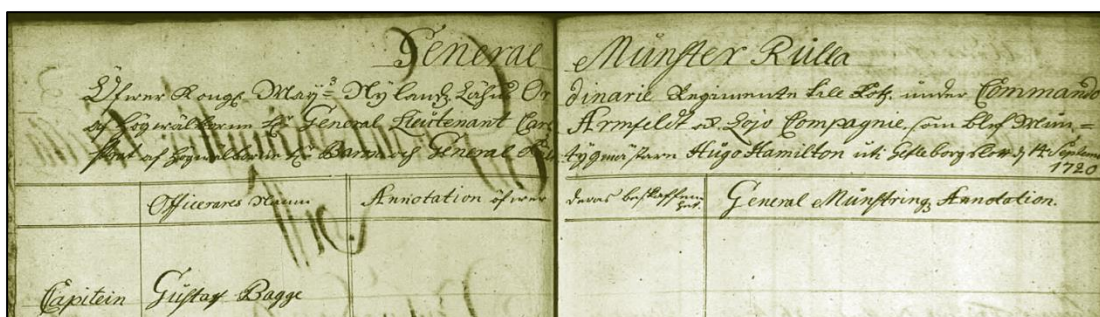 General Münster Rulla
Öfwer Kongl May:s Nylandz Lähns Ordinarie Regimente till Foth. under Commando
af Högwälborne H: General Lieutenant Carl Armfeldt Lojo Compagnie, som blef Mün=
strat af Högwälborne H: Baron och General Fält tygmästaren Hugo Hamilton uti Gefleborgs Slott d 14 Septemb
1720
Officerares Namn Annotation öfwer deras beskaffenhet. General Münstringz Annotation.
Capitein Gustaf Bagge